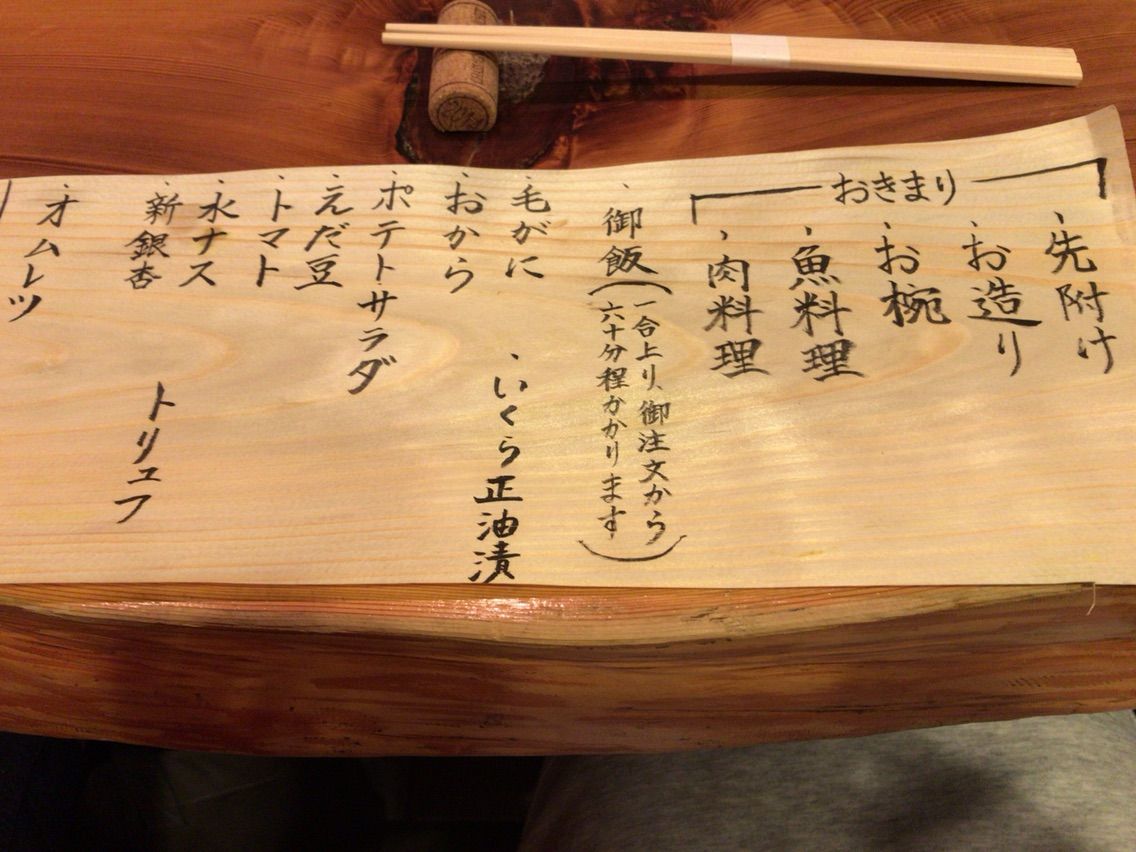 おきまり
、先附け
、お造り
、お椀
、魚料理
、肉料理
、御飯
(一合上り、御注文から
六十分程かかります)
、毛がに
、いくら正油漬
、おから
、ポテトサラダ
、えだ豆
、トマト
、水ナス
、新銀杏
トリュフ
、オムレツ